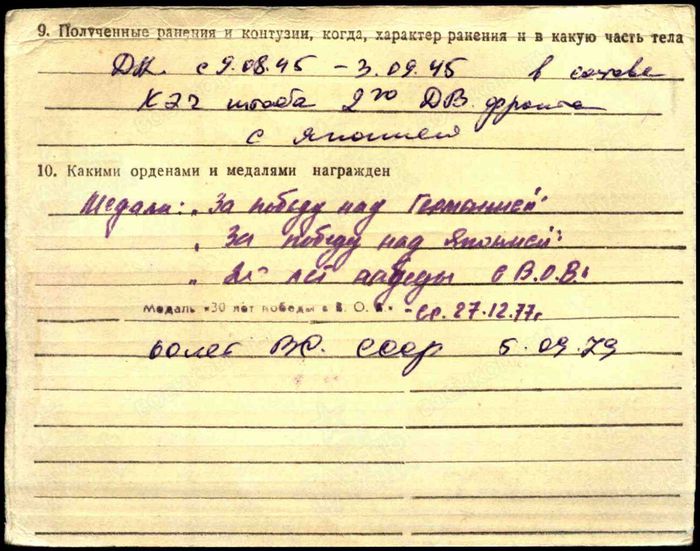 9. Полученные ранения и контузии, когда, характер ранения и в какую часть тела
ДК. с 9.08.45 – 3.09.45 в составе
КЭЧ штаба 2го ДВ. фронта
с Японией
10. Какими орденами и медалями награжден
Медали: „За победу над Германией"
„За победу над Японией"
лет победы в В.О.В."
Медаль «30 лет победы в В. О. В.» - 27.12.77г
60 лет ВС. СССР 5.09.79